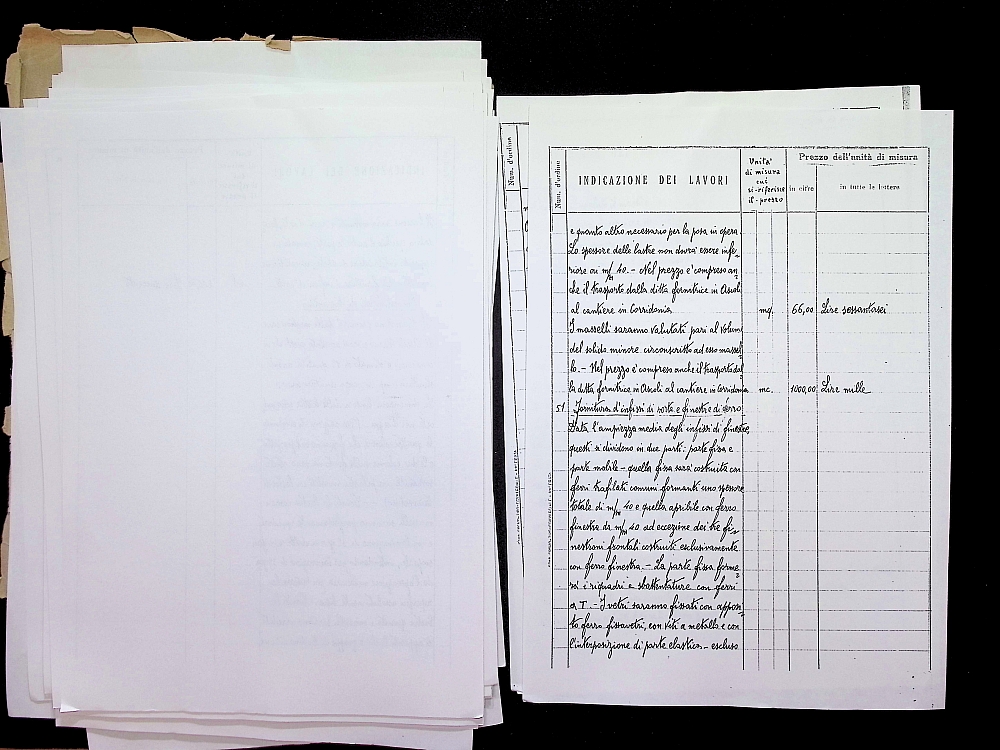 Num. d'ordine
Num. d'ordine
INDICAZIONE DEI LAVORI
Unita'
di misura
cui
si riferisce
il prezzo
Prezzo dell'unità di misura
in cifre
in tutte le lettere
e quanto altro necessario per la posa in opera.
Lo spessore delle lastre non dovra' essere infe-
riore ai m/m 40. - Nel prezzo e' compreso an-
che il trasporto dalla ditta fornitrice in Ascoli
al cantiere in Corridonia mq. 66,00 Lire sessantasei
I masselli saranno valutati pari al volume
del solido minore circonscritto ad esso massel
lo. - Nel prezzo e' compreso anche il trasporto dal
la ditta fornitrice in Ascoli al cantiere in Corridonia mc. 1000,00 Lire mille
51 Fornitura d'infissi di porta e finestre di ferro
Data l'ampiezza media degli infissi di finestre,
questi si dividono in due parti: parte fissa e
parte mobile - quella fissa sara' costruita con
ferri trafilati comuni formanti uno spessore
totale di m/m 40 e quella apribile con ferro
finestra da m/m 40 ad eccezione dei tre fi-
nestroni frontali costruiti esclusivamente
con ferro finestra. - La parte fissa forme
ra' i riquadri e sbattentature con ferri
a T. - I vetri saranno fissati con apposi-
to ferro fissavetri, con viti a metallo e con
l'interposizione di parte elastica - escluso